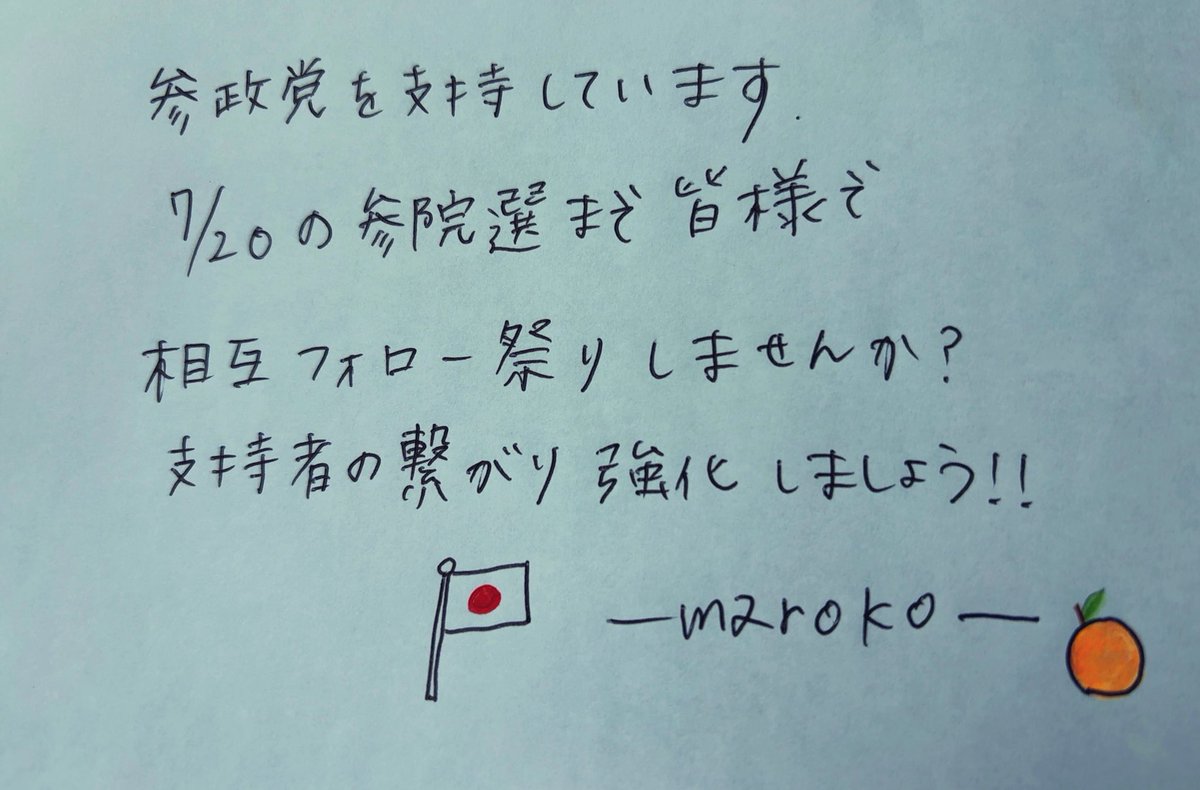 参政党を支持しています.
7/20の参院選まで皆様で
相互フォロー祭りしませんか?
支持者の繋がり強化しましょう!!
—maroko—